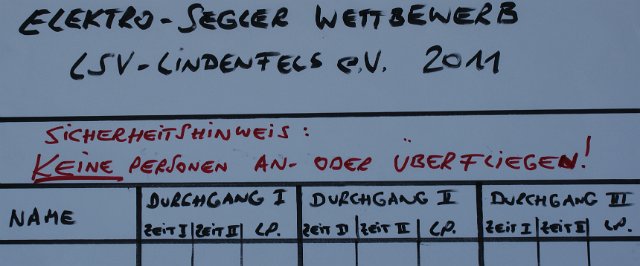 ELEKTRO-SEGLER WETTBEWERB
LSV-LINDENFELS e.V. 2011
SICHERHEITSHINWEIS:
KEINE PERSONEN AN- ODER ÜBERFLIEGEN!
NAME DURCHGANG I DURCHGANG II DURCHGANG III
ZEIT I ZEIT II LP. ZEIT I ZEIT II LP. ZEIT I ZEIT II LP.